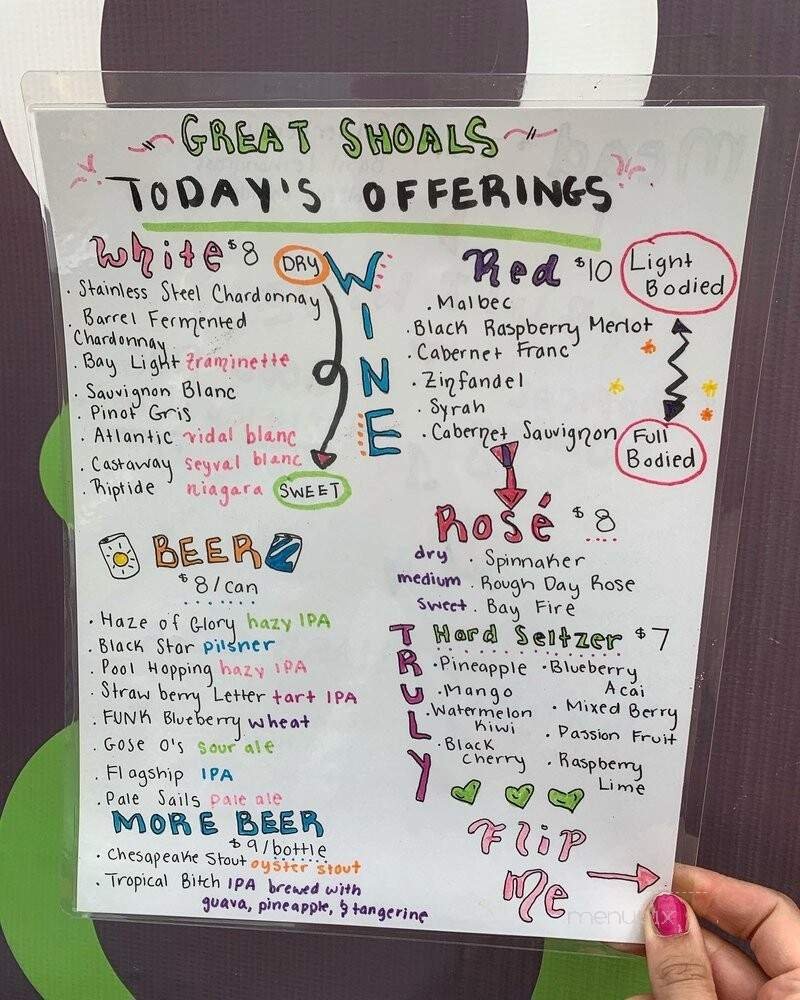 GREAT SHOALS
TODAY'S OFFERINGS
White $8
DRY
SWEET
WINE
. Stainless Steel Chardonnay
. Barrel Fermented
Chardonnay
. Bay Light Traminette
. Sauvignon Blanc
. Pinot Gris
. Atlantic vidal blanc
. Castaway seyval blanc
. Riptide niagara
Red $10
Light
Bodied
Full
Bodied
. Malbec
. Black Raspberry Merlot
. Cabernet Franc
. Zinfandel
. Syrah
. Cabernet Sauvignon
Rosé $8
dry . Spinnaker
medium . Rough Day Rose
sweet . Bay Fire
BEER
$8/can
. Haze of Glory hazy IPA
. Black Star pilsner
. Pool Hopping hazy IPA
. Strawberry Letter tart IPA
. FUNK Blueberry wheat
. Gose O's sour ale
. Flagship IPA
. Pale Sails pale ale
MORE BEER
$9/bottle
. Chesapeake Stout oyster stout
. Tropical Bitch IPA brewed with
guava, pineapple, & tangerine
TRULY
Hard Seltzer $7
. Pineapple
. Mango
. Watermelon
Kiwi
. Black
Cherry
. Blueberry
Acai
. Mixed Berry
. Passion Fruit
. Raspberry
Lime
Flip
Me